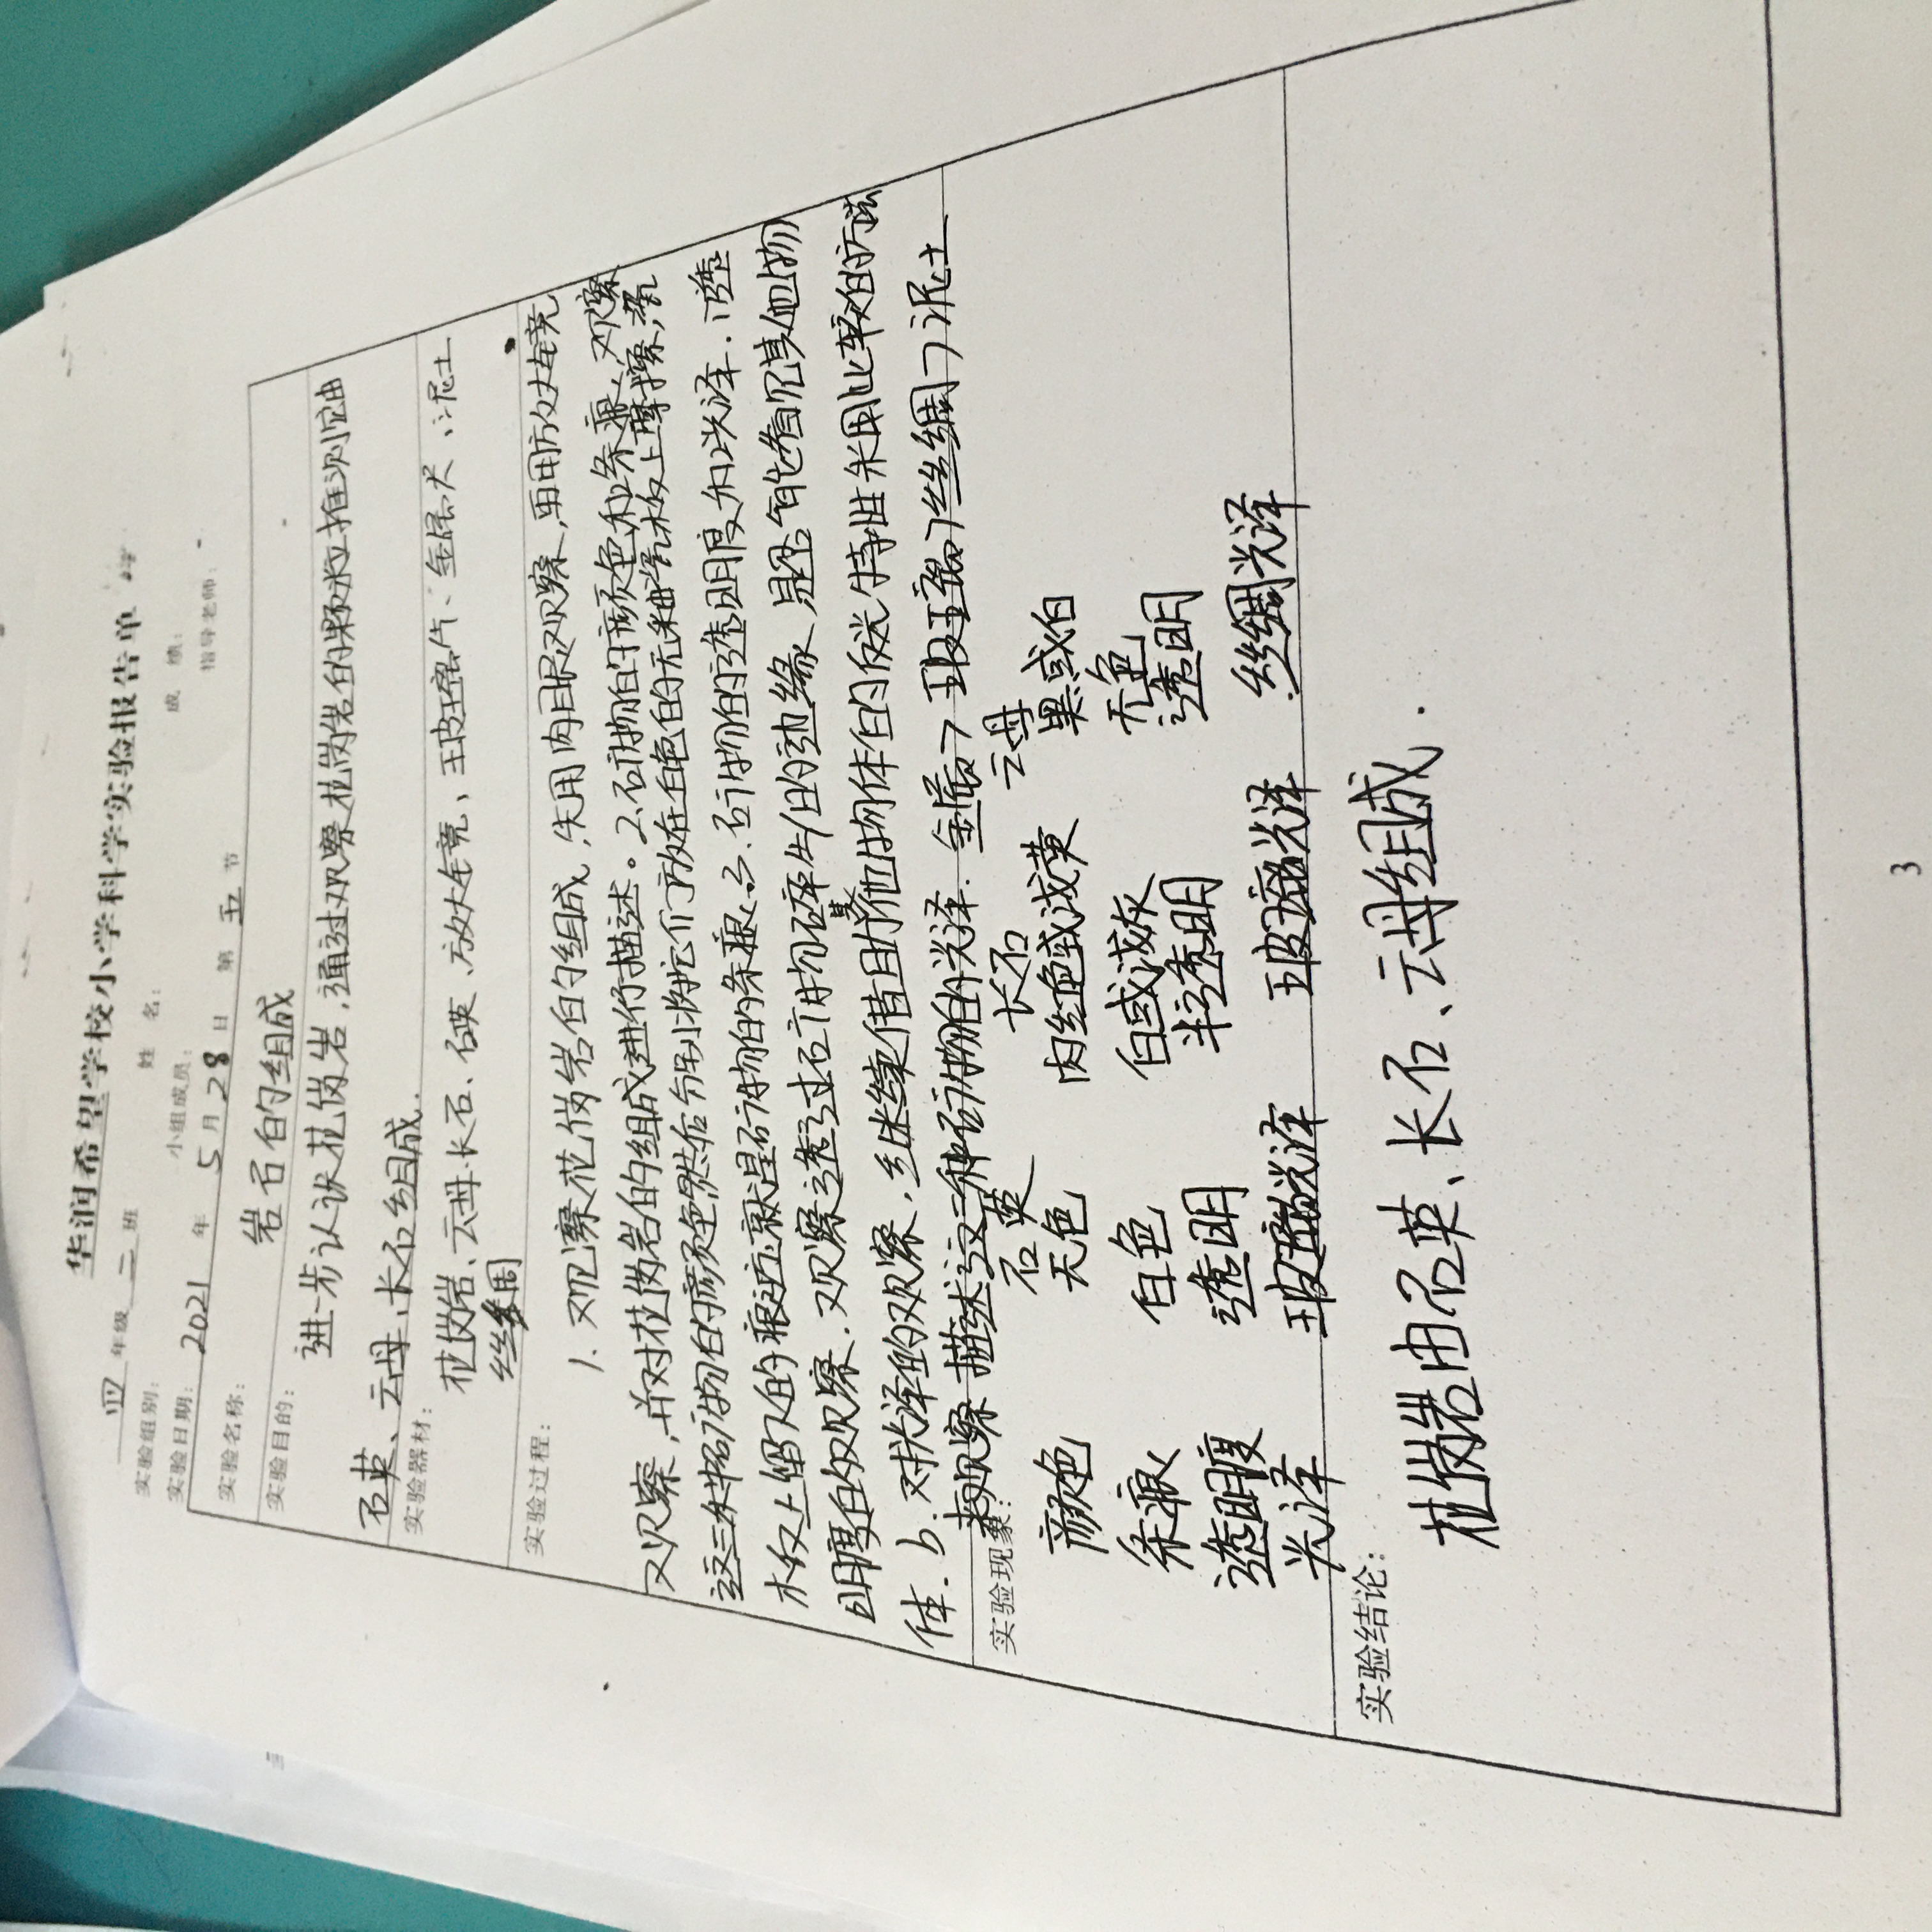 华润希望学校小学科学实验报告单
四 年级 二 班 姓 名： 成 绩：
实验组别： 小组成员： 指导老师：
实验日期： 2021 年 5 月 28 日 第 五 节
实验名称： 岩石的组成
实验目的：
进一步认识花岗岩，通过观察花岗岩的颗粒推测它由
石英、云母、长石组成．
实验器材： 花岗岩、云母、长石、石英、放大镜、玻璃片、金属尺、泥土
丝绸
实验过程：
1. 观察花岗岩的组成，先用肉眼观察，再用放大镜
观察，并对花岗岩的组成进行描述。2.矿物的颜色和条痕，观察
这三种矿物的颜色然后分别将它们放在白色的无釉瓷板上摩擦，瓷
板上留下的痕迹就是矿物的条痕．3．矿物的透明度和光泽．a透
明度的观察．观察透过矿物碎片的边缘，是否能看见其他物
体．b．对光泽的观察，继续借助其他物体的反光特性采用比较的方法
来观察 描述这三种矿物的光泽．金属＞玻璃＞丝绸＞泥土
实验现象：
石英 长石 云母
颜色 无色 肉红色或浅黄 黑或白
条痕 白色 白或灰 无色
透明度 透明 半透明 透明
光泽 玻璃光泽 玻璃光泽 丝绸光泽
实验结论：
花岗岩由石英、长石、云母组成．
3